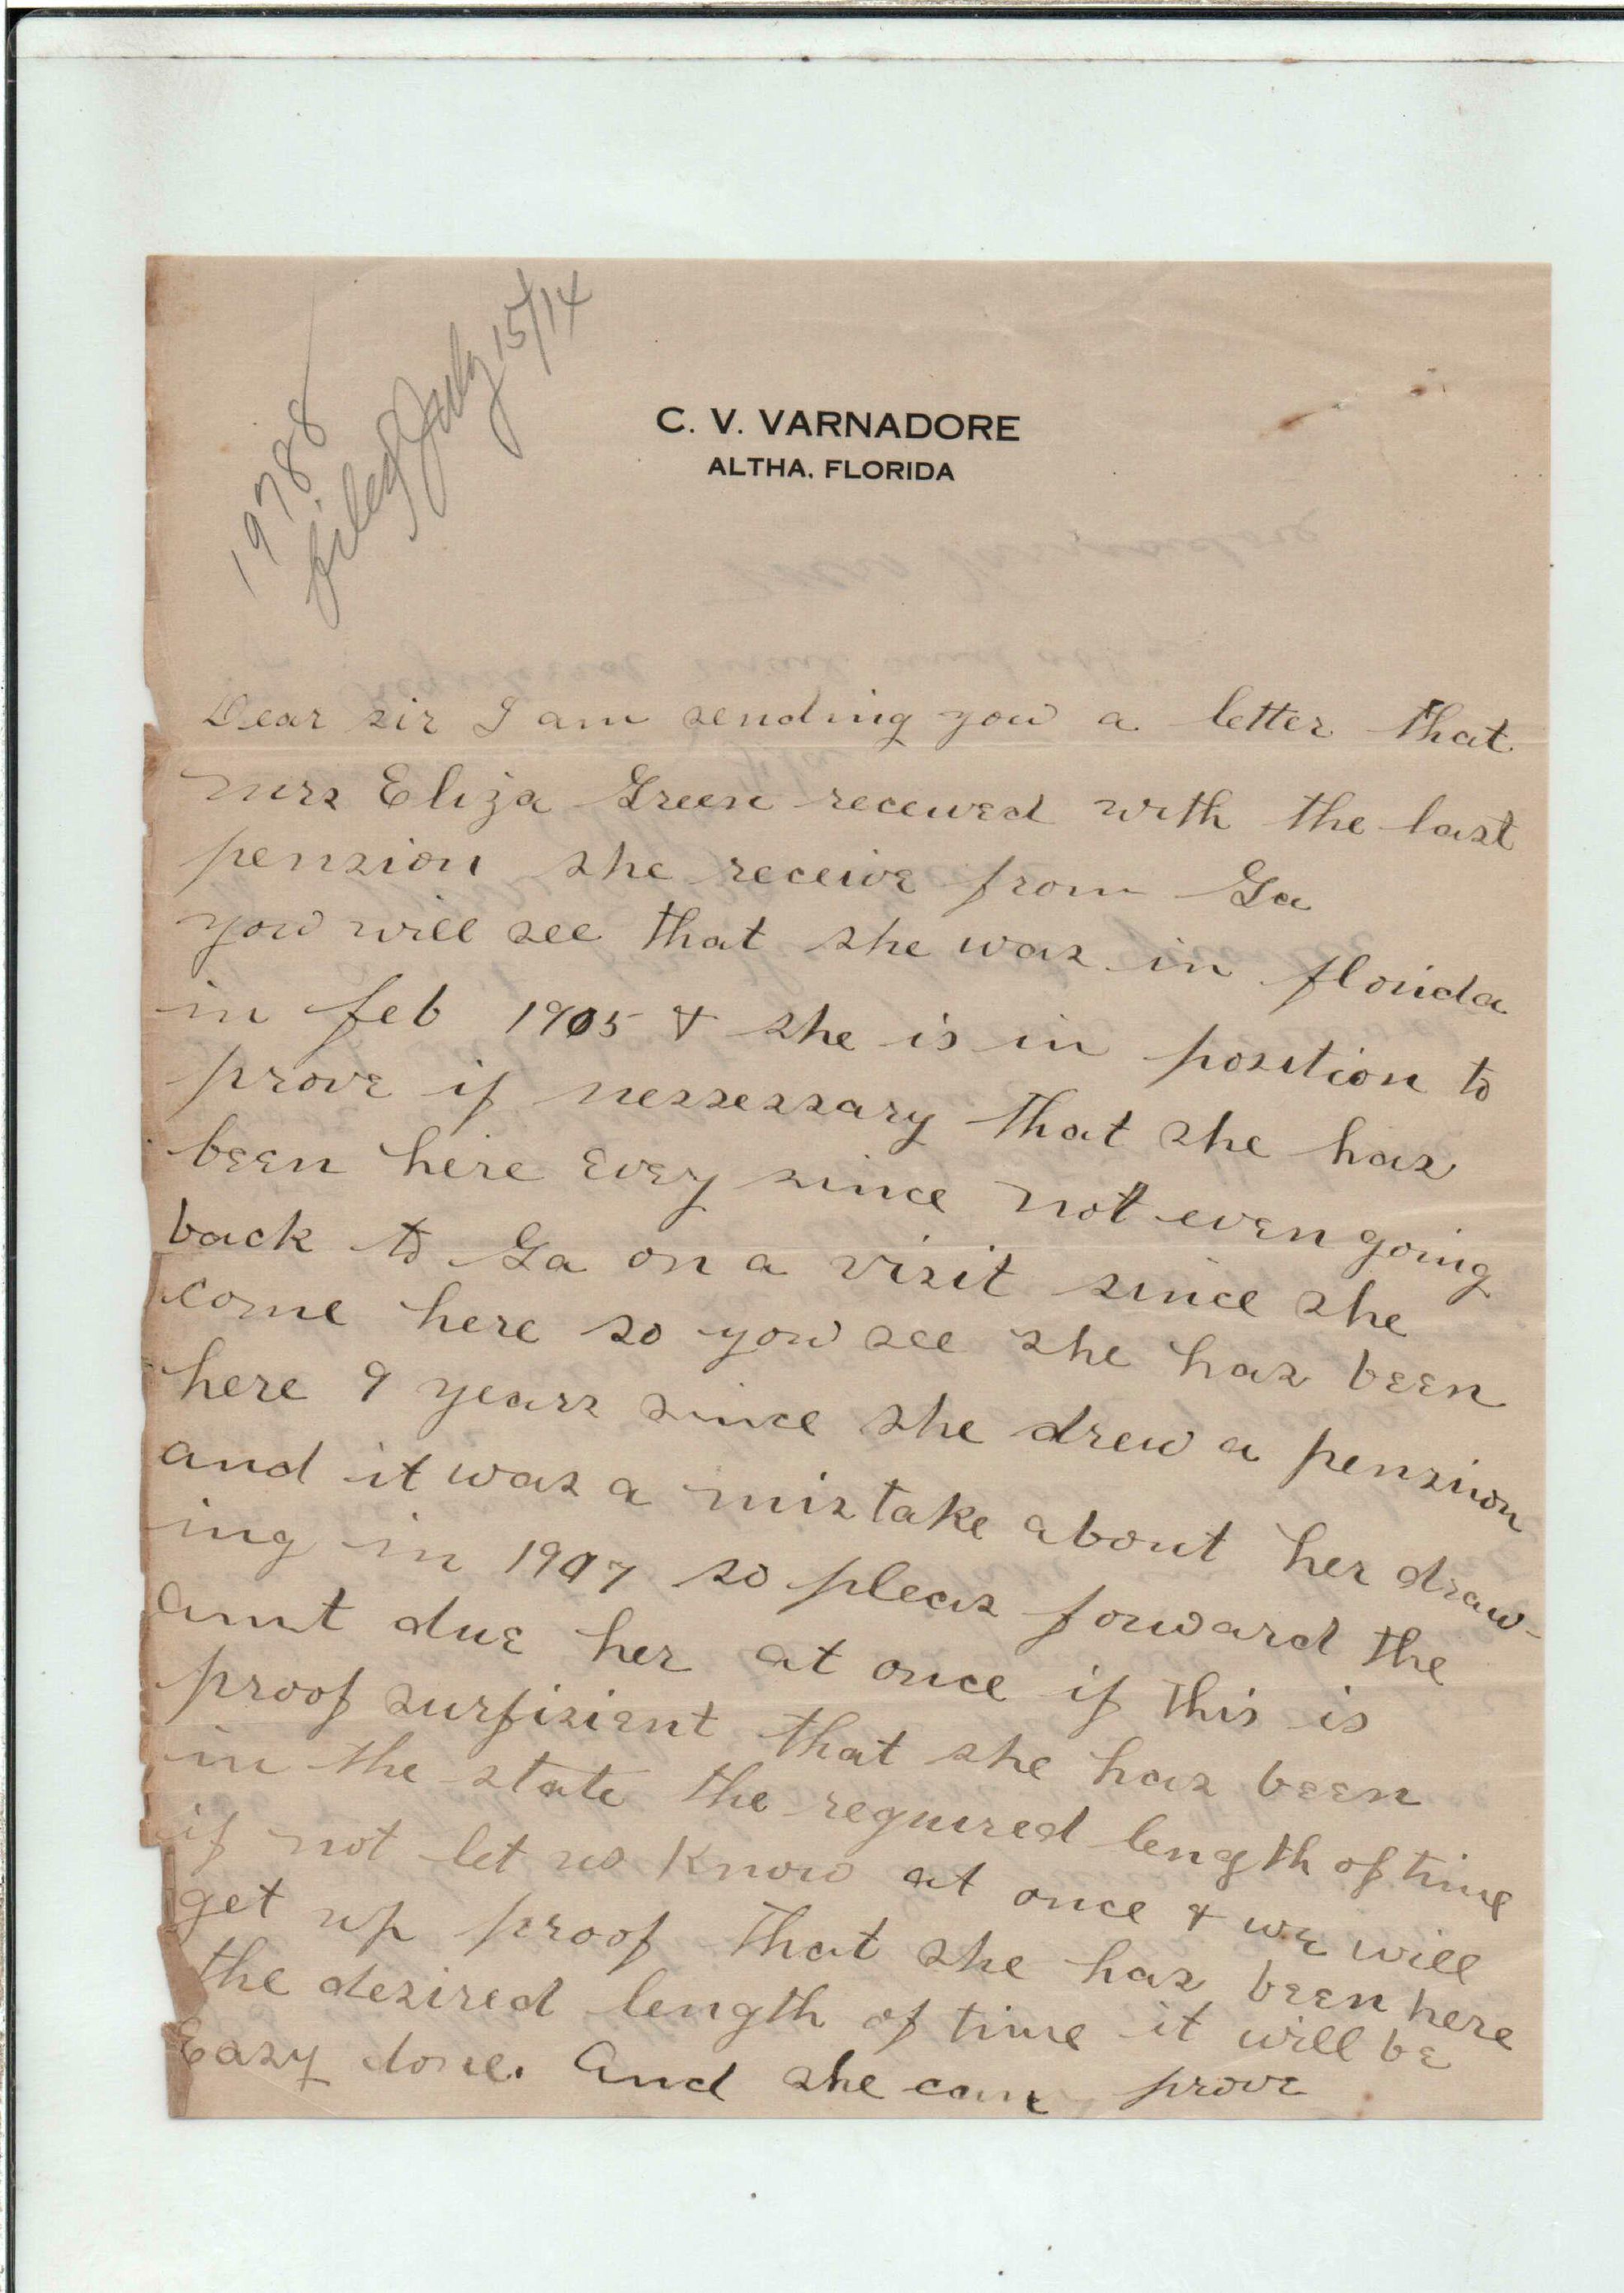 19788
filed July 15/14
C. V. VARNADORE
ALTHA, FLORIDA
Dear sir I am sending you a letter that
mrs Eliza Green received with the last
pension she receive from Ga
you will see that she was in florida
in feb 1905 & she is in position to
prove if nessessary that she has
been here evey since not even going
back to Ga on a visit since she
come here so you see she has been
here 9 years since she drew a pension
and it was a mistake about her draw-
ing in 1907 so pleas forward the
amt due her at once if this is
proof surfisient that she has been
in the state the required length of time
if not let us know at once & we will
get up proof that she has been here
the desired length of time it will be
Easy done. And she can prove